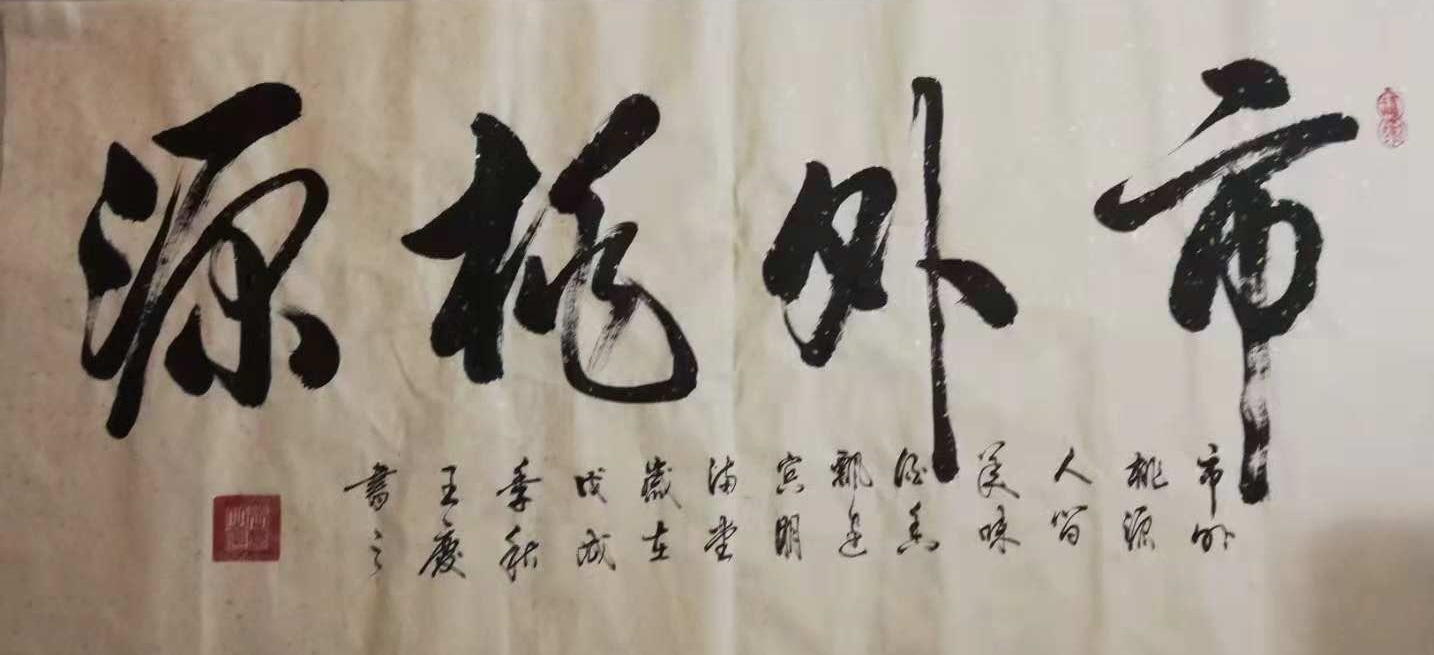 市外桃源
市外
桃源
人间
美味
酒香
飘逸
宾朋
满堂
岁在
戊戌
季秋
王庆
书之